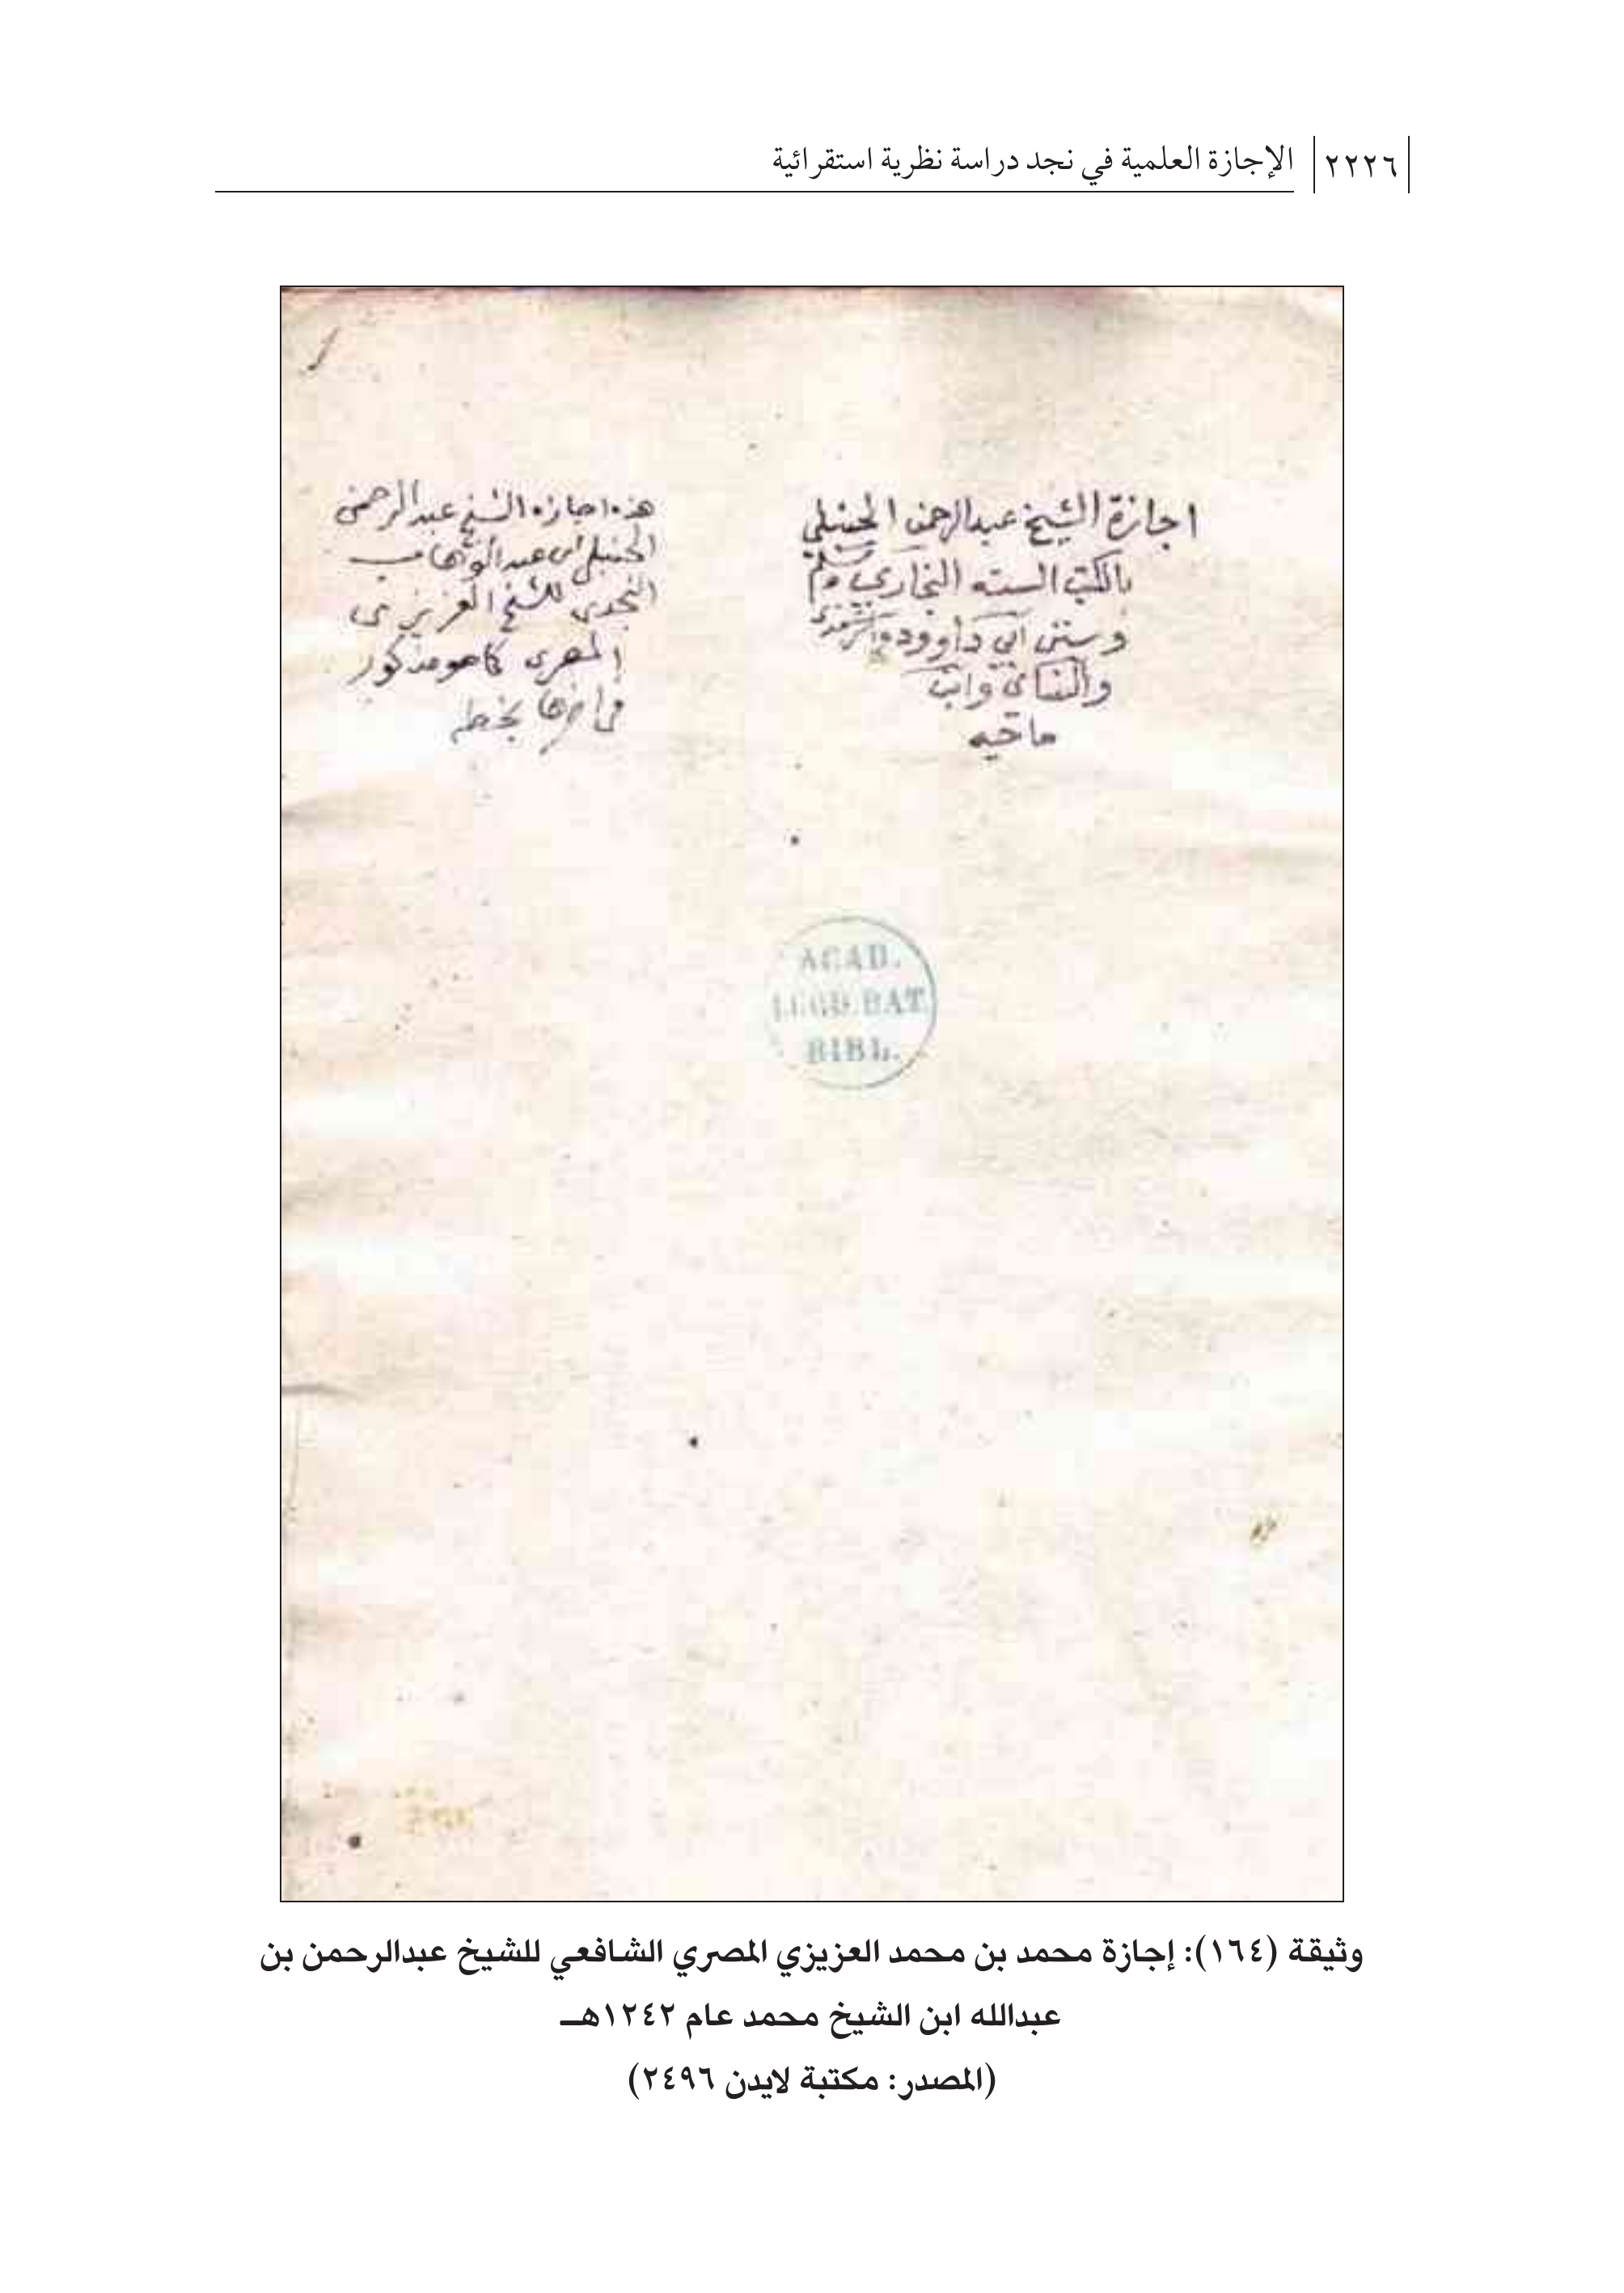 ٢٢٢٦
الإجازة العلمية في نجد دراسة نظرية استقرائية
اجازة الشيخ عبدالرحمن الحنبلي
بالكتب السته البخاري ومسلم
وسنن ابي داوود والترمذى
والنساى وابن
ماجيه
هذه اجازه الشيخ عبدالرحمن
الحنبلى ابن عبدالوهاب
النجدى للشيخ العزيزى
المصرى كما هو مذكور
فى اخرها بخطه
ACAD.
LUGD. BAT.
BIBL.
وثيقة (١٦٤): إجازة محمد بن محمد العزيزي المصري الشافعي للشيخ عبدالرحمن بن
عبدالله ابن الشيخ محمد عام ١٢٤٢هـ
(المصدر: مكتبة لايدن ٢٤٩٦)